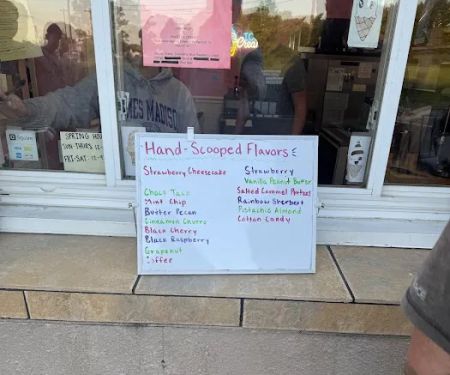 Hand-Scooped Flavors
Strawberry Cheesecake
Choco Taco
Mint Chip
Butter Pecan
Cinnamon Churro
Black Cherry
Black Raspberry
Grapenut
Coffee
Strawberry
Vanilla Peanut Butter
Salted Caramel Pretzel
Rainbow Sherbert
Pistachio Almond
Cotton Candy
MADISON
Square
SPRING HO
SUN-THURS
FRI-SAT